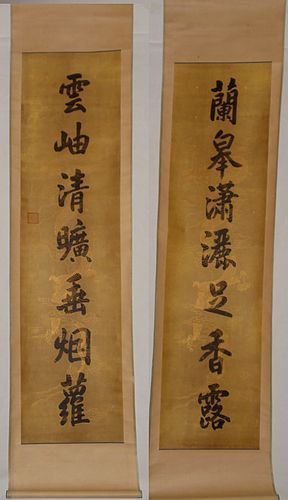 蘭皋潇灑足香露
雲岫清曠垂烟蘿